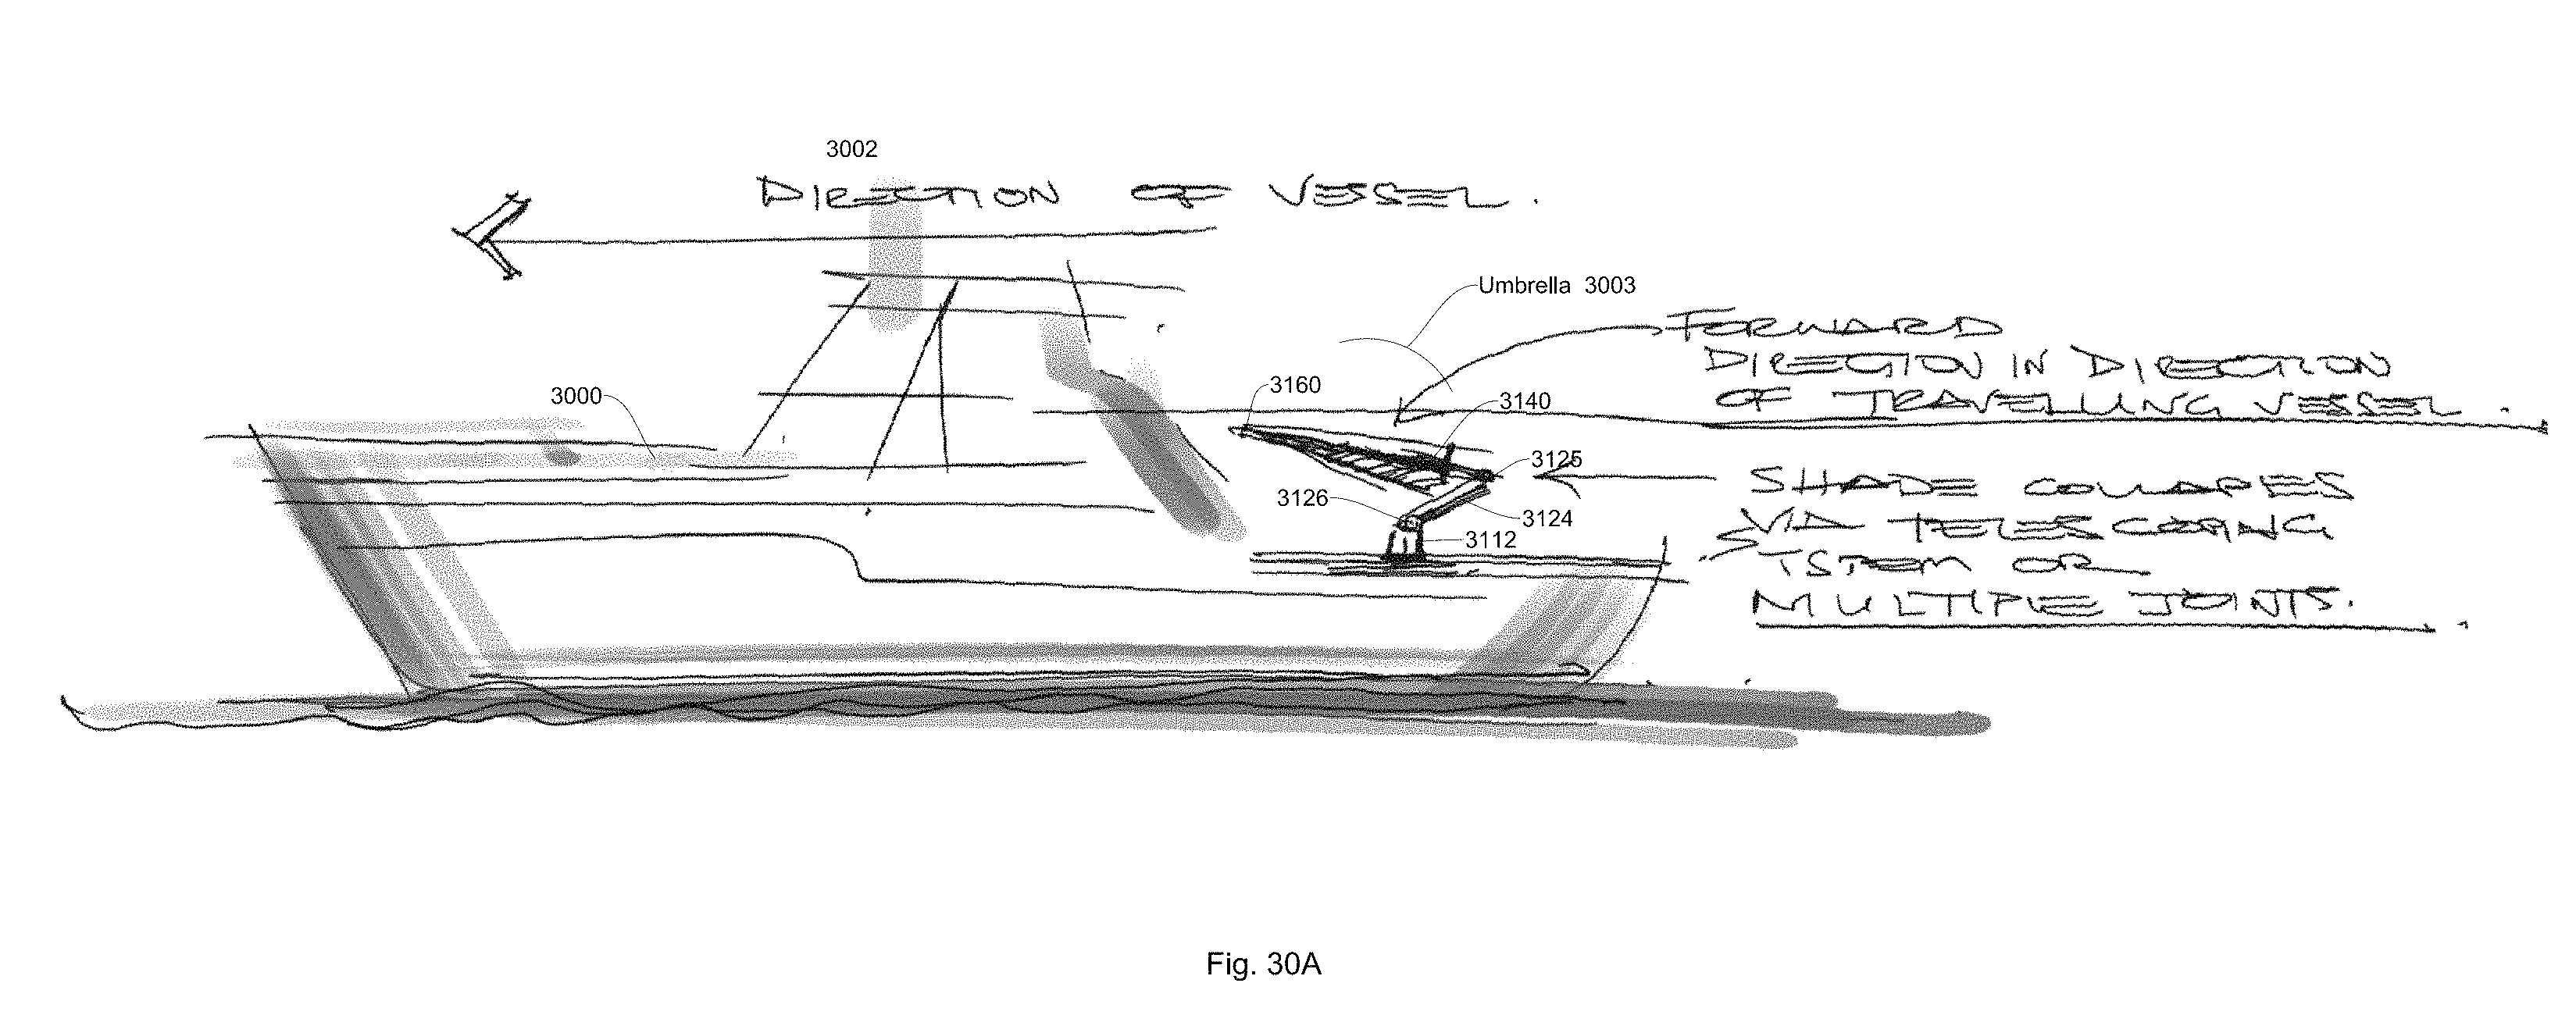 3002
DIRECTION OF VESSEL.
Umbrella 3003
FORWARD
DIRECTION IN DIRECTION
OF TRAVELLING VESSEL.
3160
3000
3140
3125
SHADE COLLAPSES
3126
3124
VIA TELESCOPING
3112
SYSTEM OR
MULTIPLE JOINTS.
Fig. 30A